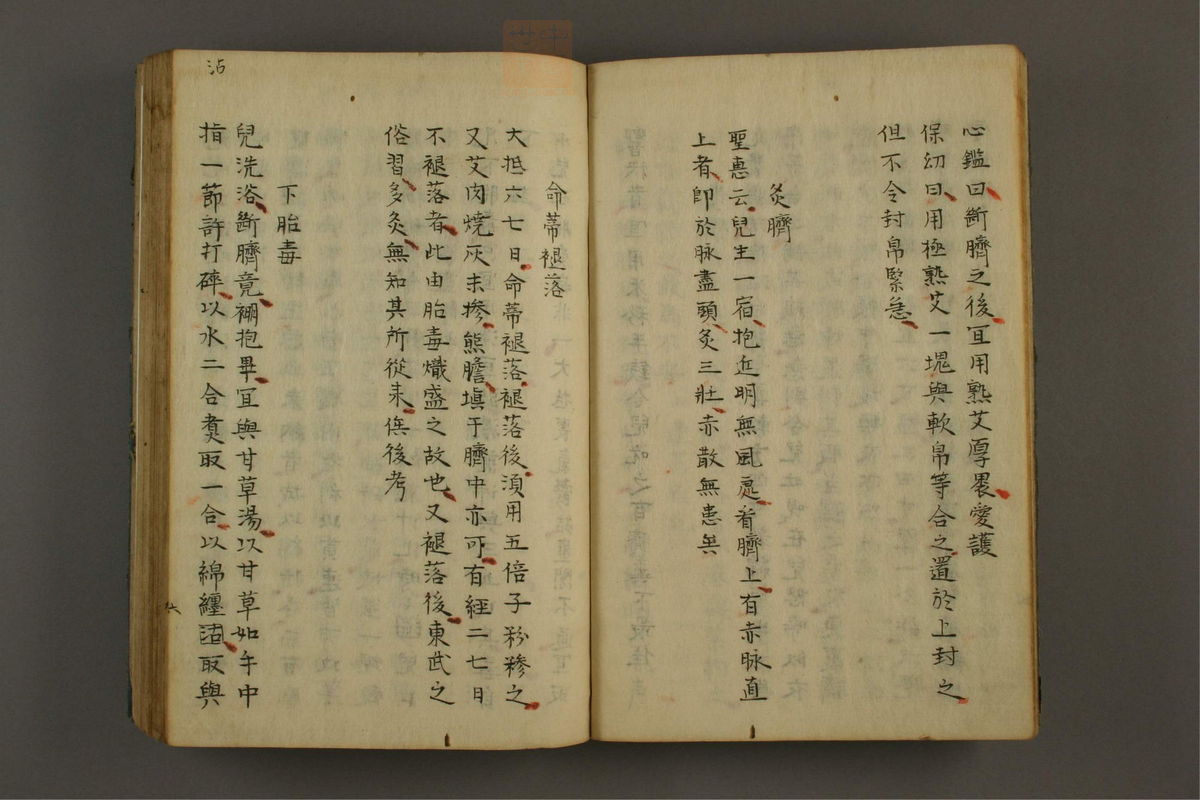 心鑑曰断臍之後冝用熟艾厚褁愛護
保幼曰用極熟艾一塊與軟帛等合之置於上封之
但不令封帛緊急
灸臍
聖恵云兒生一宿抱近明無風处看臍上有赤脉直
上者即於脉盡頭灸三壮赤散無恙矣
命蒂褪落
大抵六七日命蒂褪落褪落後湏用五倍子粉糝之
又艾肉焼灰末摻熊膽塡于臍中亦可有経二七日
不褪落者此由胎毒熾盛之故也又褪落後東武之
俗習多灸無知其所従来俟後考
下胎毒
兒洗浴断臍竟襁抱畢冝與甘草湯以甘草如手中
指一節許打碎以水二合煑取一合以綿纏囼取與
沾